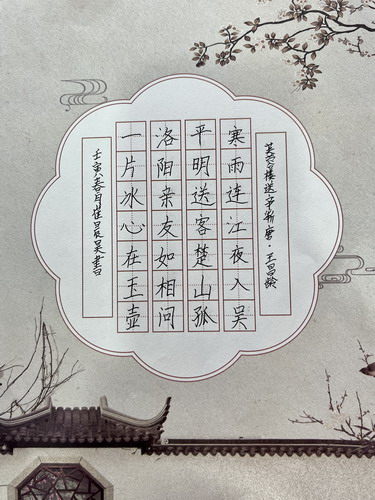 芙蓉楼送辛渐唐·王昌龄
寒雨连江夜入吴
平明送客楚山孤
洛阳亲友如相问
一片冰心在玉壶
壬寅春月崔昊书